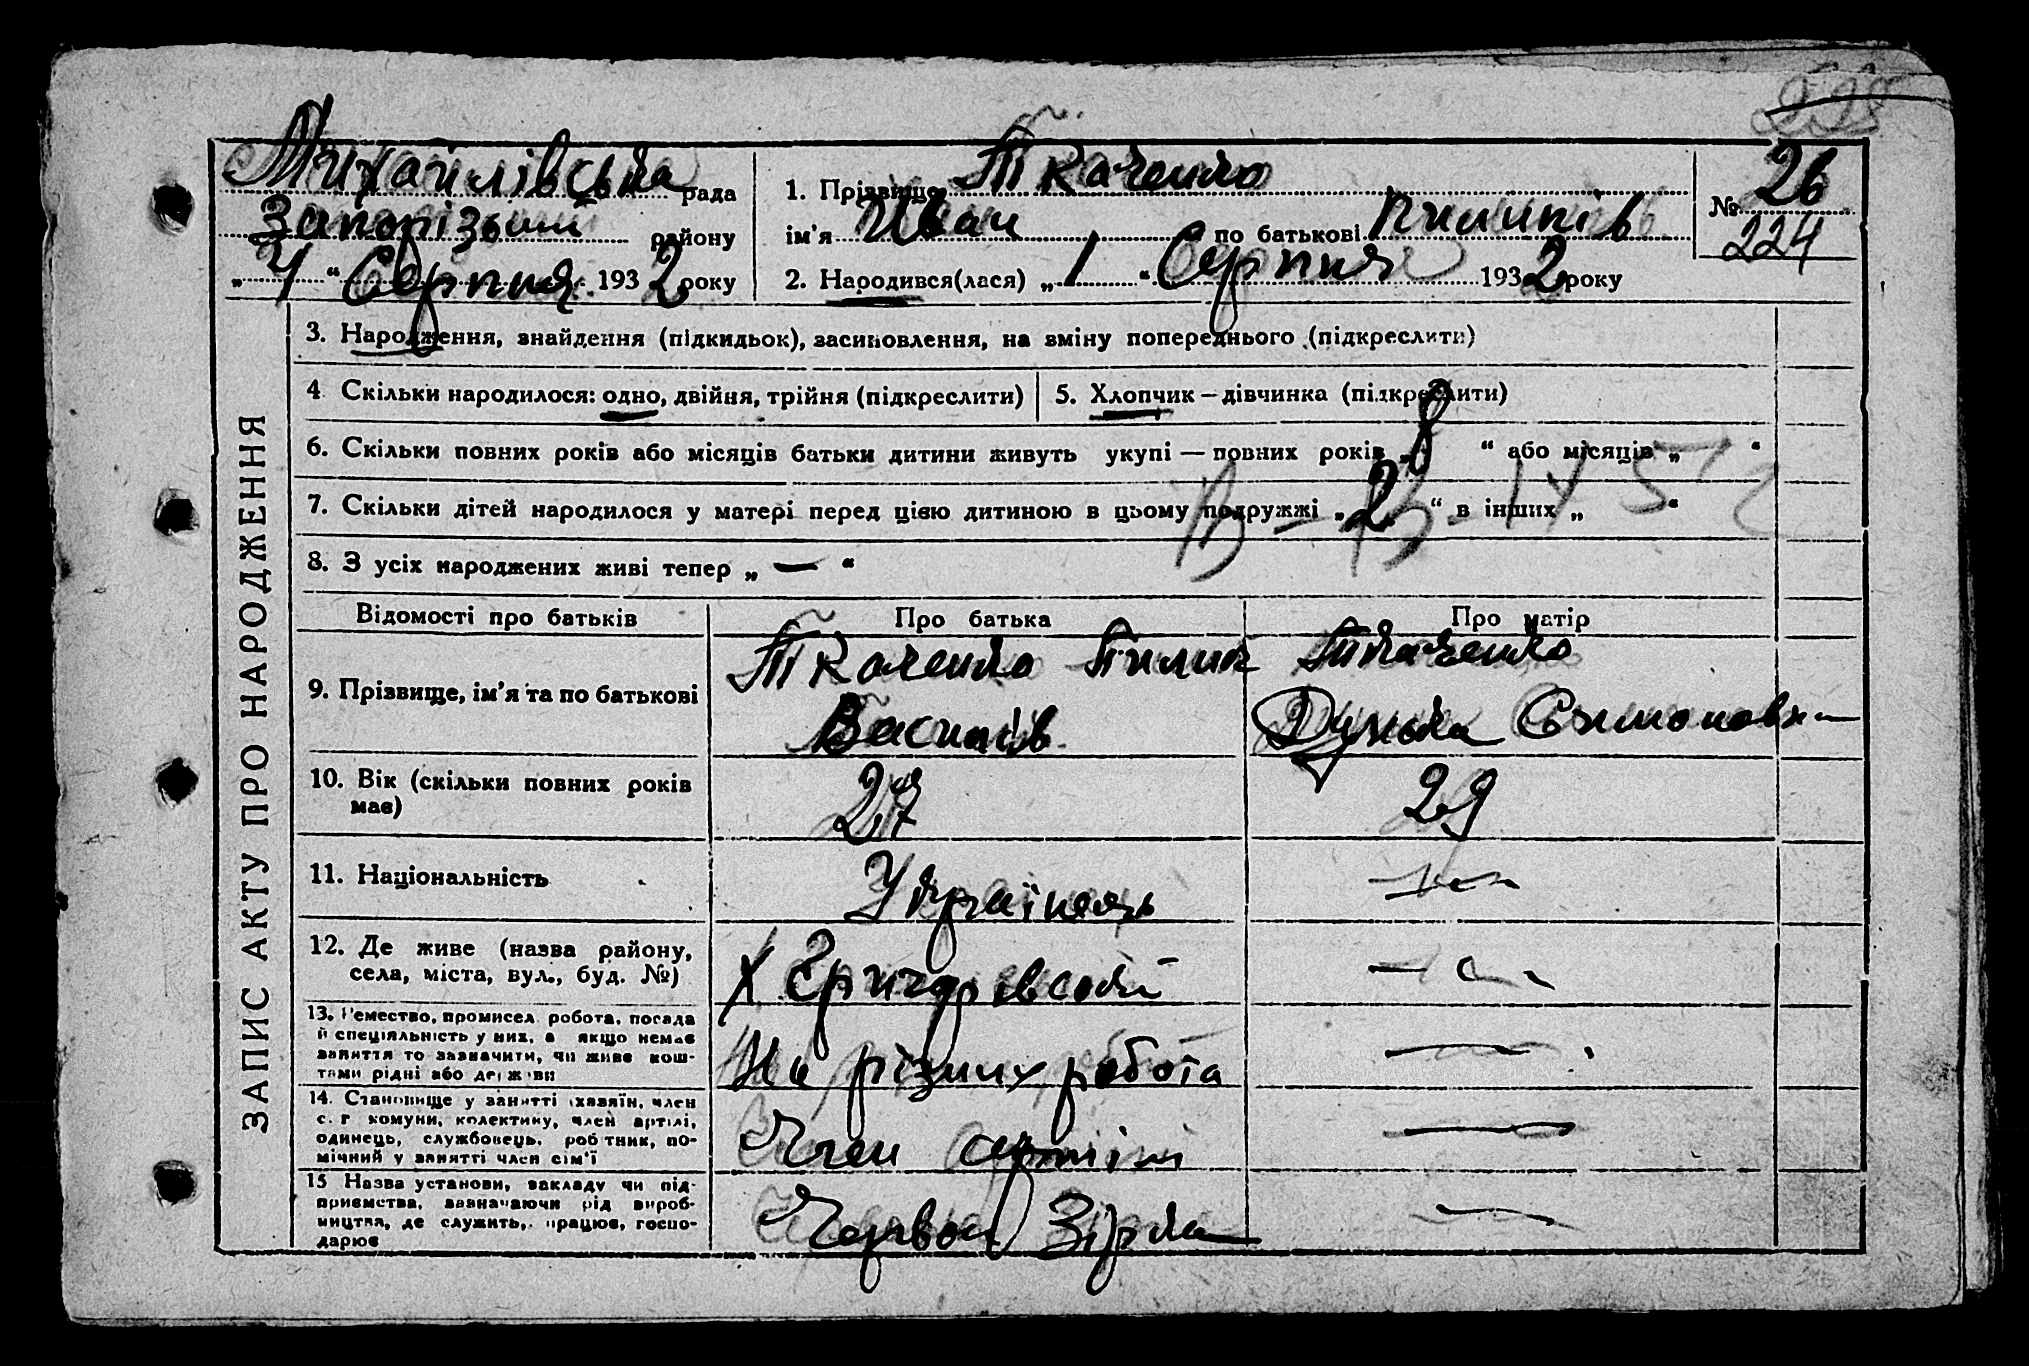 Михайлівська рада
Запорізький району
„ 4 “ Серпня 1932 року
1. Прізвище Ткаченко
ім'я Иван по батькові Пилипів
2. Народився(лася) „ 1 “ Серпня 1932 року
№ 26
224
ЗАПИС АКТУ ПРО НАРОДЖЕННЯ
3. Народження, знайдення (підкидьок), засиновлення, на зміну попереднього (підкреслити)
4 Скільки народилося: одно, двійня, трійня (підкреслити)
5. Хлопчик – дівчинка (підкреслити)
6. Скільки повних років або місяців батьки дитини живуть укупі — повних років „ 8 “ або місяців „ “
7. Скільки дітей народилося у матері перед цією дитиною в цьому подружжі „ 2 “ в інших „ “
8. З усіх народжених живі тепер „ — “
Відомості про батьків Про батька Про матір
9. Прізвище, ім'я та по батькові
Ткаченко Пилип
Василів
Ткаченко
Дунька Симоновна
10. Вік (скільки повних років має) 27 29
11. Національність Українець
12. Де живе (назва району,
села, міста, вул., буд. №)
Х
13. Ремество, промисел робота, посада
й спеціяльність у них, а якщо немає
заняття то зазначити, чи живе кош-
тами рідні або держави
На різних робота
14. Становище у занятті (хазяїн, член
с. г комуни, колективу, член артілі,
одинець, службовець, робітник, по-
мічний у занятті член сім'ї
Член артілі
15 Назва установи, закладу чи під-
приємства, зазначаючи рід вироб-
ництва, де служить, працює, госпо-
дарює
Червон Зірка